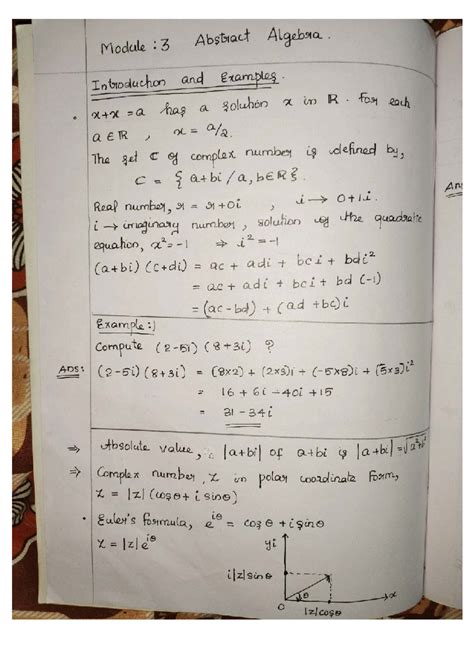 Module : 3 Abstract Algebra.
Introduction and Examples.
• x+x = a has a solution x in ℝ. For each
a ∈ ℝ , x = a/2.
The set ℂ of complex number is defined by,
C = { a+bi / a, b ∈ ℝ }.
Real number, r = r+0i , i → 0+1.i.
i → imaginary number, solution of the quadratic
equation, x² = -1 ⇒ i² = -1
(a+bi) (c+di) = ac + adi + bci + bdi²
= ac + adi + bci + bd (-1)
= (ac-bd) + (ad +bc)i
Example:)
Compute (2-5i) (8+3i) ?
Ans: (2-5i) (8+3i) = (8x2) + (2x3)i + (-5x8)i + (5x3)i²
= 16 + 6i - 40i + 15
= 31 - 34i
⇒ Absolute value, |a+bi| of a+bi is |a+bi| = √a²+b²
⇒ Complex number, z in polar coordinate form,
z = |z| (cosθ + i sinθ)
• Euler's formula, e^iθ = cosθ + i sinθ
z = |z| e^iθ
yi
i|z|sinθ
θ
x
0
|z|cosθ
An